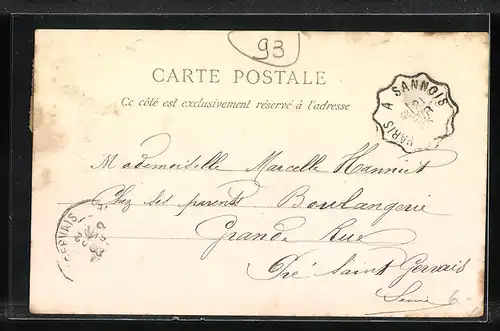 93
CARTE POSTALE
Ce côté est exclusivement réservé à l'adresse
PARIS A SANNOIS
Mademoiselle Marcelle
Chez ses parents. Boulangerie
Grande Rue
Pré Saint Gervais
Seine
GERVAIS
6-